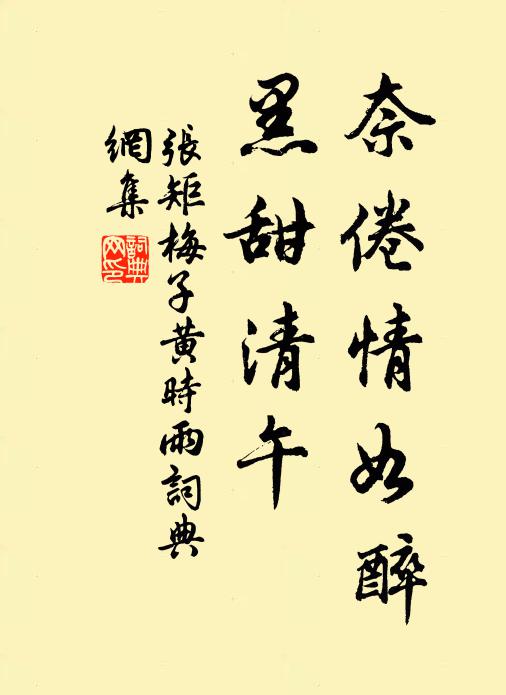 奈倦情如醉
黑甜清午
張矩梅子黃時雨詞典
網集
詞典
网印